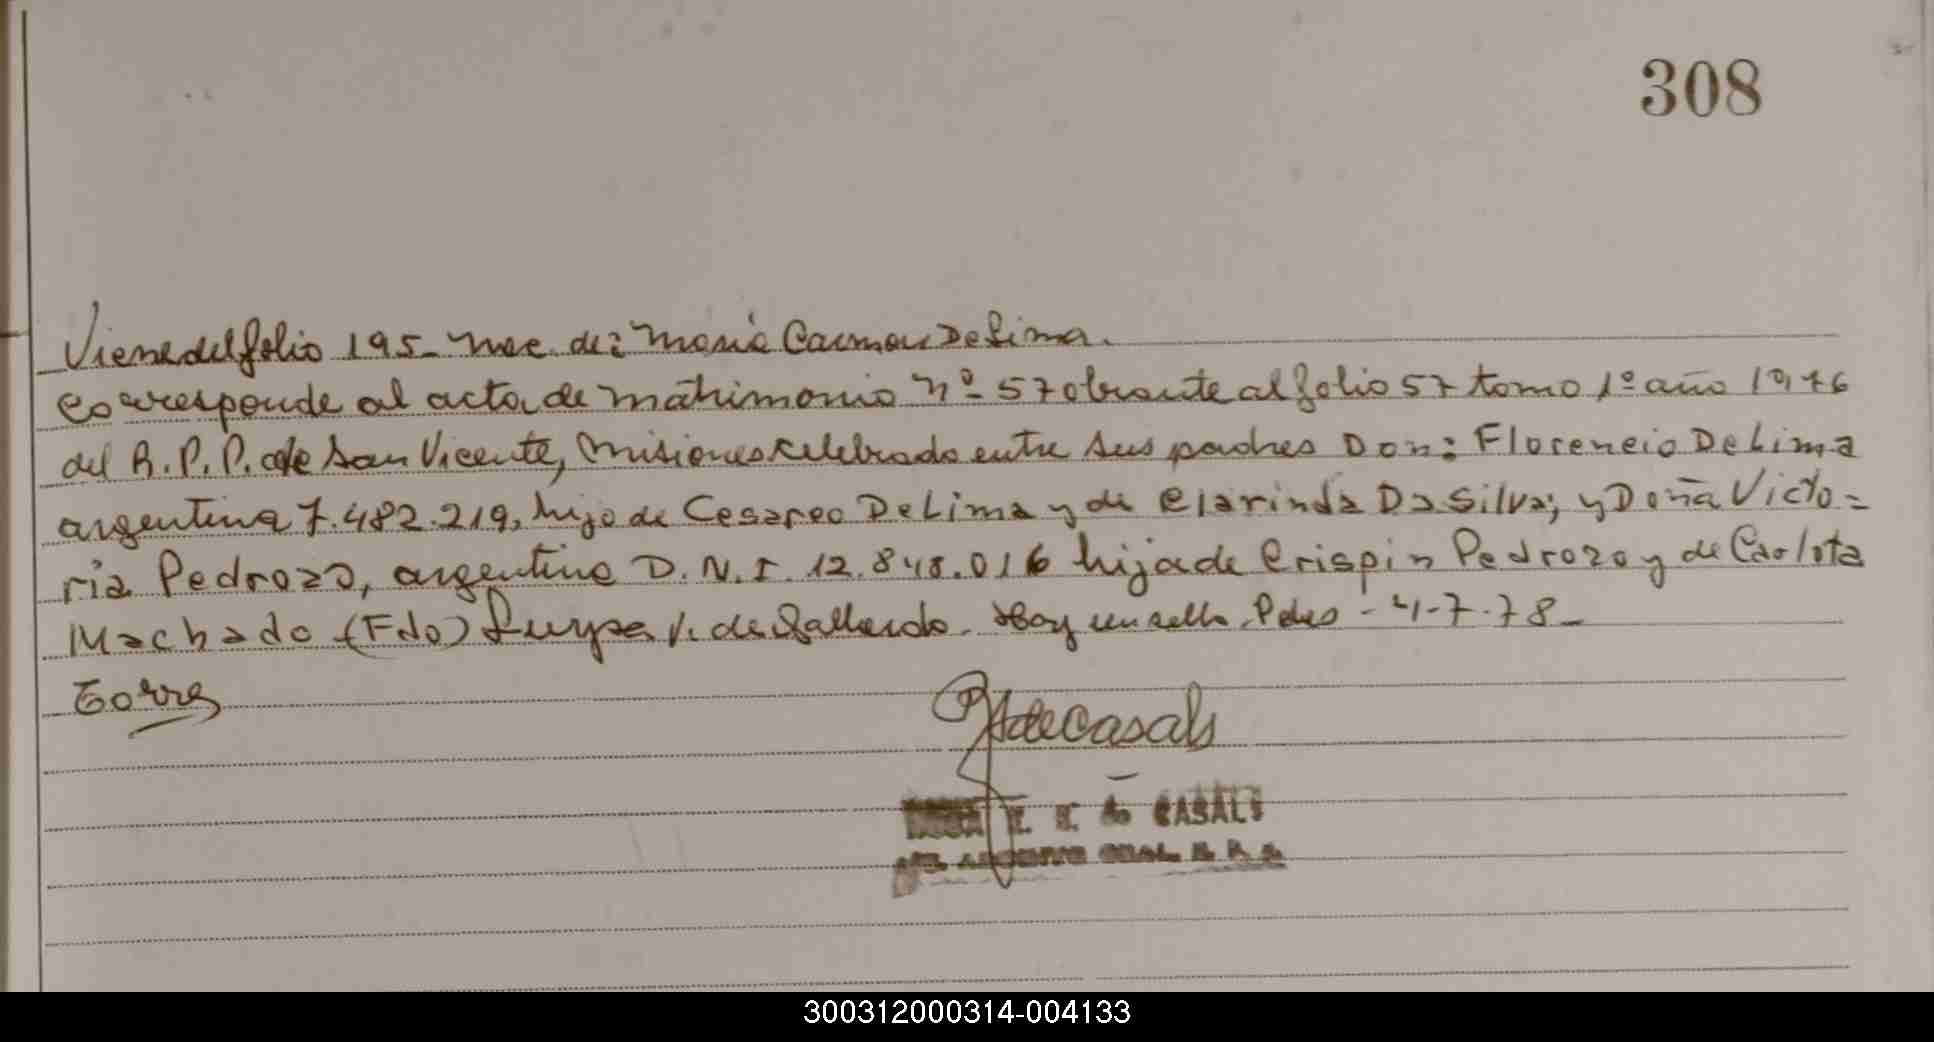 308
Viene del folio 195- Nac. de: Maria Carmen De Lima.
Corresponde al acta de matrimonio nº 57 obrante al folio 57 tomo 1º año 1976
del R.P.P. de San Vicente, Misiones celebrado entre sus padres Don: Florencio De Lima
argentina 7.482.219, hijo de Cesareo De Lima y de Clarinda Da Silva; y Doña Victo=
ria Pedrozo, argentina D.N.I. 12.848.016 hija de Crispin Pedrozo y de Carlota
Machado (Fdo) V. de Gallardo. Hay un sello. Pdas - 4-7-78-
Torres
de Casals
de CASALS
300312000314-004133